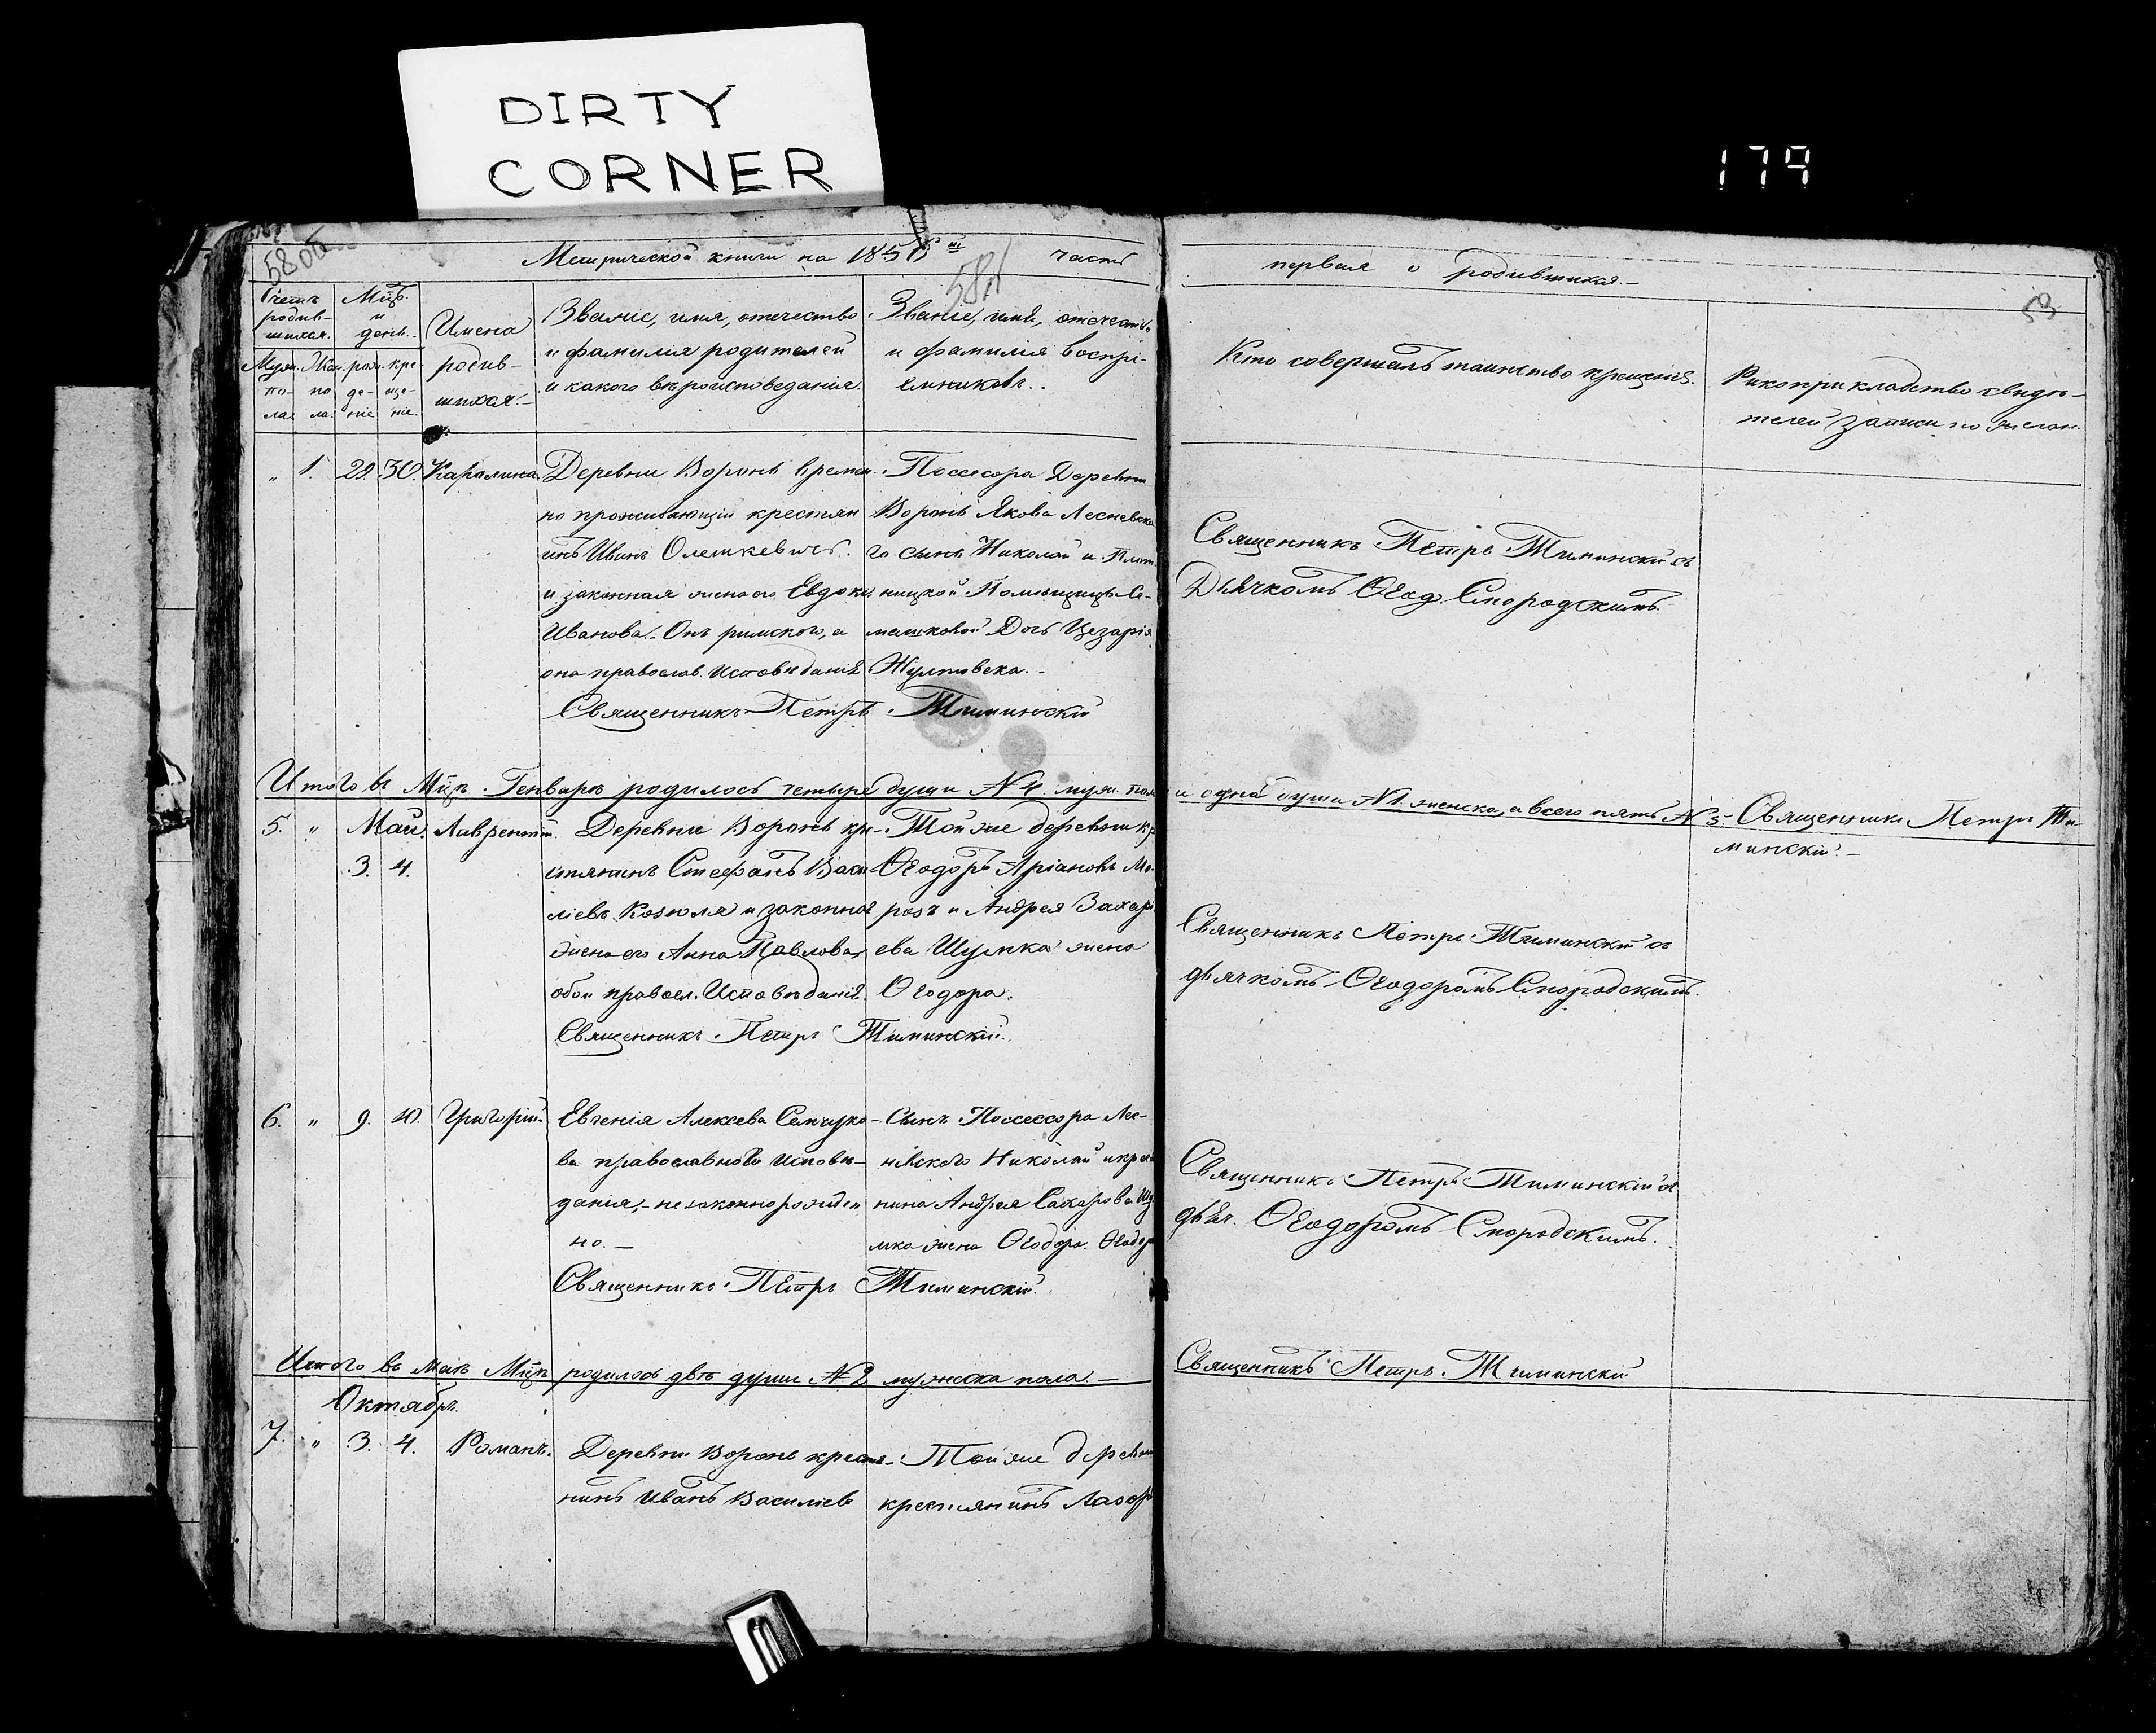 DIRTY
CORNER
179
58 об
Метрической книги на 1858
часть
58
первая о родившихся.-
59
Счетъ родив-шихся.
Мцъ. и день.
Имена родив-шихся.-
Званіе, имя, отечество
и фамилія родителей
и какого вѣроисповеданія.
Званіе, имя, отечество
и фамилія воспрі-
емниковъ.
Муж. по-ла
Жен. по-ла
рож-де-ніе
кре-ще-ніе
Кто совершалъ таинство крещенія.
Рукоприкладство свидѣ-
телей записи по желан.
" 1. 29. 30. Каролина.
Деревни Воронь времен-
но проживающій крестян
инъ Иванъ Олешкевичъ.
и законная жена его Евдокія
Иванова.- Онъ римского, а
она православ. Исповѣданія
Священникъ Петръ Тиминскій
Поссесора Деревни
Воронь Якова Лесневска
го сынъ Николай и
ницкой Помѣщицы Се-
машковой Дочь Цезарія
Жултовска.-
Священникъ Петръ Тиминскій съ
Дьячкомъ Ѳеод. Смородскимъ.
Итого въ Мцѣ Генварѣ родилось четыре души N 4. муж. пола и одна душа N 1. женска, а всего пять N 5. Священникъ Петръ Ти-
минскій.-
5. " Май. Лаврентій.
3. 4.
Деревни Воронь кре-
стянинъ Стефанъ Васи-
ліевъ Козюля и законная
жена его Анна Павлова,
обои правосл. Исповѣданія.
Священникъ Петръ Тиминскій.
Той же деревни кр
Ѳеодоръ Аріановъ Мо-
розъ и Андрея Захарі
ева Шумка жена
Ѳеодора.
Священникъ Петръ Тиминскій съ
дьячкомъ Ѳеодоромъ Смородскимъ.
6. " 9. 10. Григорій.
Евгенія Алексева Семчуко-
ва православного исповѣ-
данія,- незаконнорожден
но.-
Священникъ Петръ Тиминскій.
Сынъ Поссессора Лес-
нѣвского Николай и кресть
нина Андрея Сахарова Шу
мка жена Ѳеодора.
Священникъ Петръ Тиминскій съ
дьяч. Ѳеодоромъ Смородскимъ.
Итого въ Маѣ Мцѣ родилось двѣ души N 2 мужеска пола.-
Священникъ Петръ Тиминскій
Октябрь.
7. " 3. 4. Романъ.
Деревни Воронь крестя-
нинъ Иванъ Василіев
Той же деревни
крестянинъ Лазар